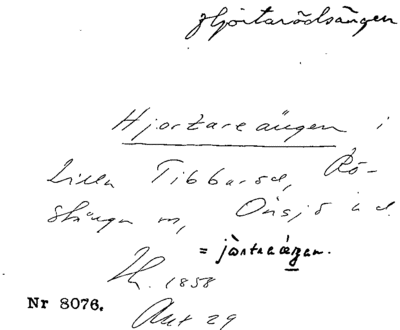 Hjortarödsängen
Hjortareängen i
Lilla Tibbarod, Rö-
stånga sn, Onsjö hd.
= jòrtaräŋen.
Lh. 1858
Nr 8076. Akt 29